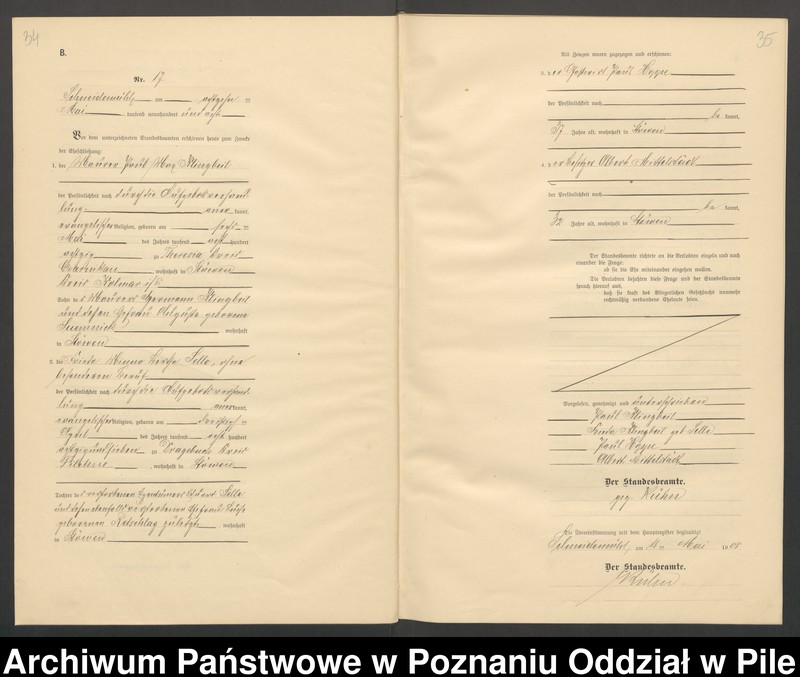 34
B.
Nr. 17
Schneidemühl, am achtzehn ten
Mai tausend neunhundert und acht
Vor dem unterzeichneten Standesbeamten erschienen heute zum Zwecke
der Eheschließung:
1. der Maurer Paul Max Klingbeil
der Persönlichkeit nach durch die Aufgebotsverhand
lung aner kannt,
evangelischer Religion, geboren am
Mai des Jahres tausend acht hundert
achtzig zu Theresia Kreis
Czarnikau, wohnhaft in Stöwen
Kreis Kolmar i/P.
Sohn des Maurers Hermann Klingbeil
und dessen Ehefrau Auguste geborene
wohnhaft
in Stöwen
2. die Frieda Minna Bertha Selle, ohne
besonderen Beruf
der Persönlichkeit nach durch die Aufgebotsverhand
lung aner kannt,
evangelischer Religion, geboren am
April des Jahres tausend acht hundert
achtzig und sieben zu Kreis
Filehne, wohnhaft in Stöwen
Tochter des verstorbenen Eigentümers Eduard Selle
und dessen ebenfalls verstorbenen Ehefrau
geborenen Ratschlag zuletzt wohnhaft
in Stöwen
35
Als Zeugen waren zugezogen und erschienen:
3. der Gastwirt Paul Hoppe
der Persönlichkeit nach
be kannt,
37 Jahre alt, wohnhaft in Stöwen
4. der Besitzer Albert Mittelstädt
der Persönlichkeit nach
be kannt,
32 Jahre alt, wohnhaft in Stöwen
Der Standesbeamte richtete an die Verlobten einzeln und nach
einander die Frage:
ob sie die Ehe miteinander eingehen wollen.
Die Verlobten bejahten diese Frage und der Standesbeamte
sprach hierauf aus,
daß sie kraft des Bürgerlichen Gesetzbuchs nunmehr
rechtmäßig verbundene Eheleute seien.
Vorgelesen, genehmigt und unterschrieben
Paul Klingbeil
Frieda Klingbeil geb. Selle
Paul Hoppe
Albert Mittelstädt
Der Standesbeamte.
gez.
Die Übereinstimmung mit dem Hauptregister beglaubigt
Schneidemühl, am ten Mai 1908
Der Standesbeamte.
Archiwum Państwowe w Poznaniu Oddział w Pile